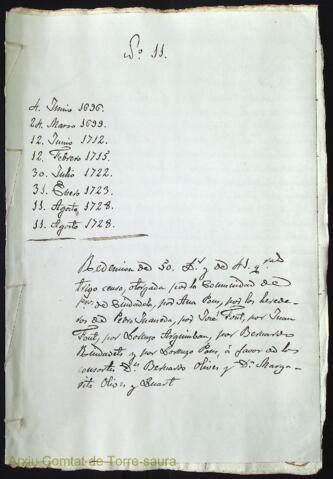 No. 11.
4. Junio 1696.
24. Marzo 1699.
12. Junio 1712.
12. Febrero 1715.
30. Julio 1722.
31. Enero 1723.
11. Agosto 1728.
11. Agosto 1728.
Redencion de 50. y de 41.
trigo censo, otorgada por la Comunidad de
de Ciudadela, por Ana Pons, por los herede-
ros de Pedro Juaneda, por José Font, por Juan
Font, por Lorenzo por Bernardo
y por Lorenzo Pons, á favor de los
consortes Dn. Bernardo Olives y Da. Marga-
rita Olives y Squart
Arxiu Comtat de Torre-saura